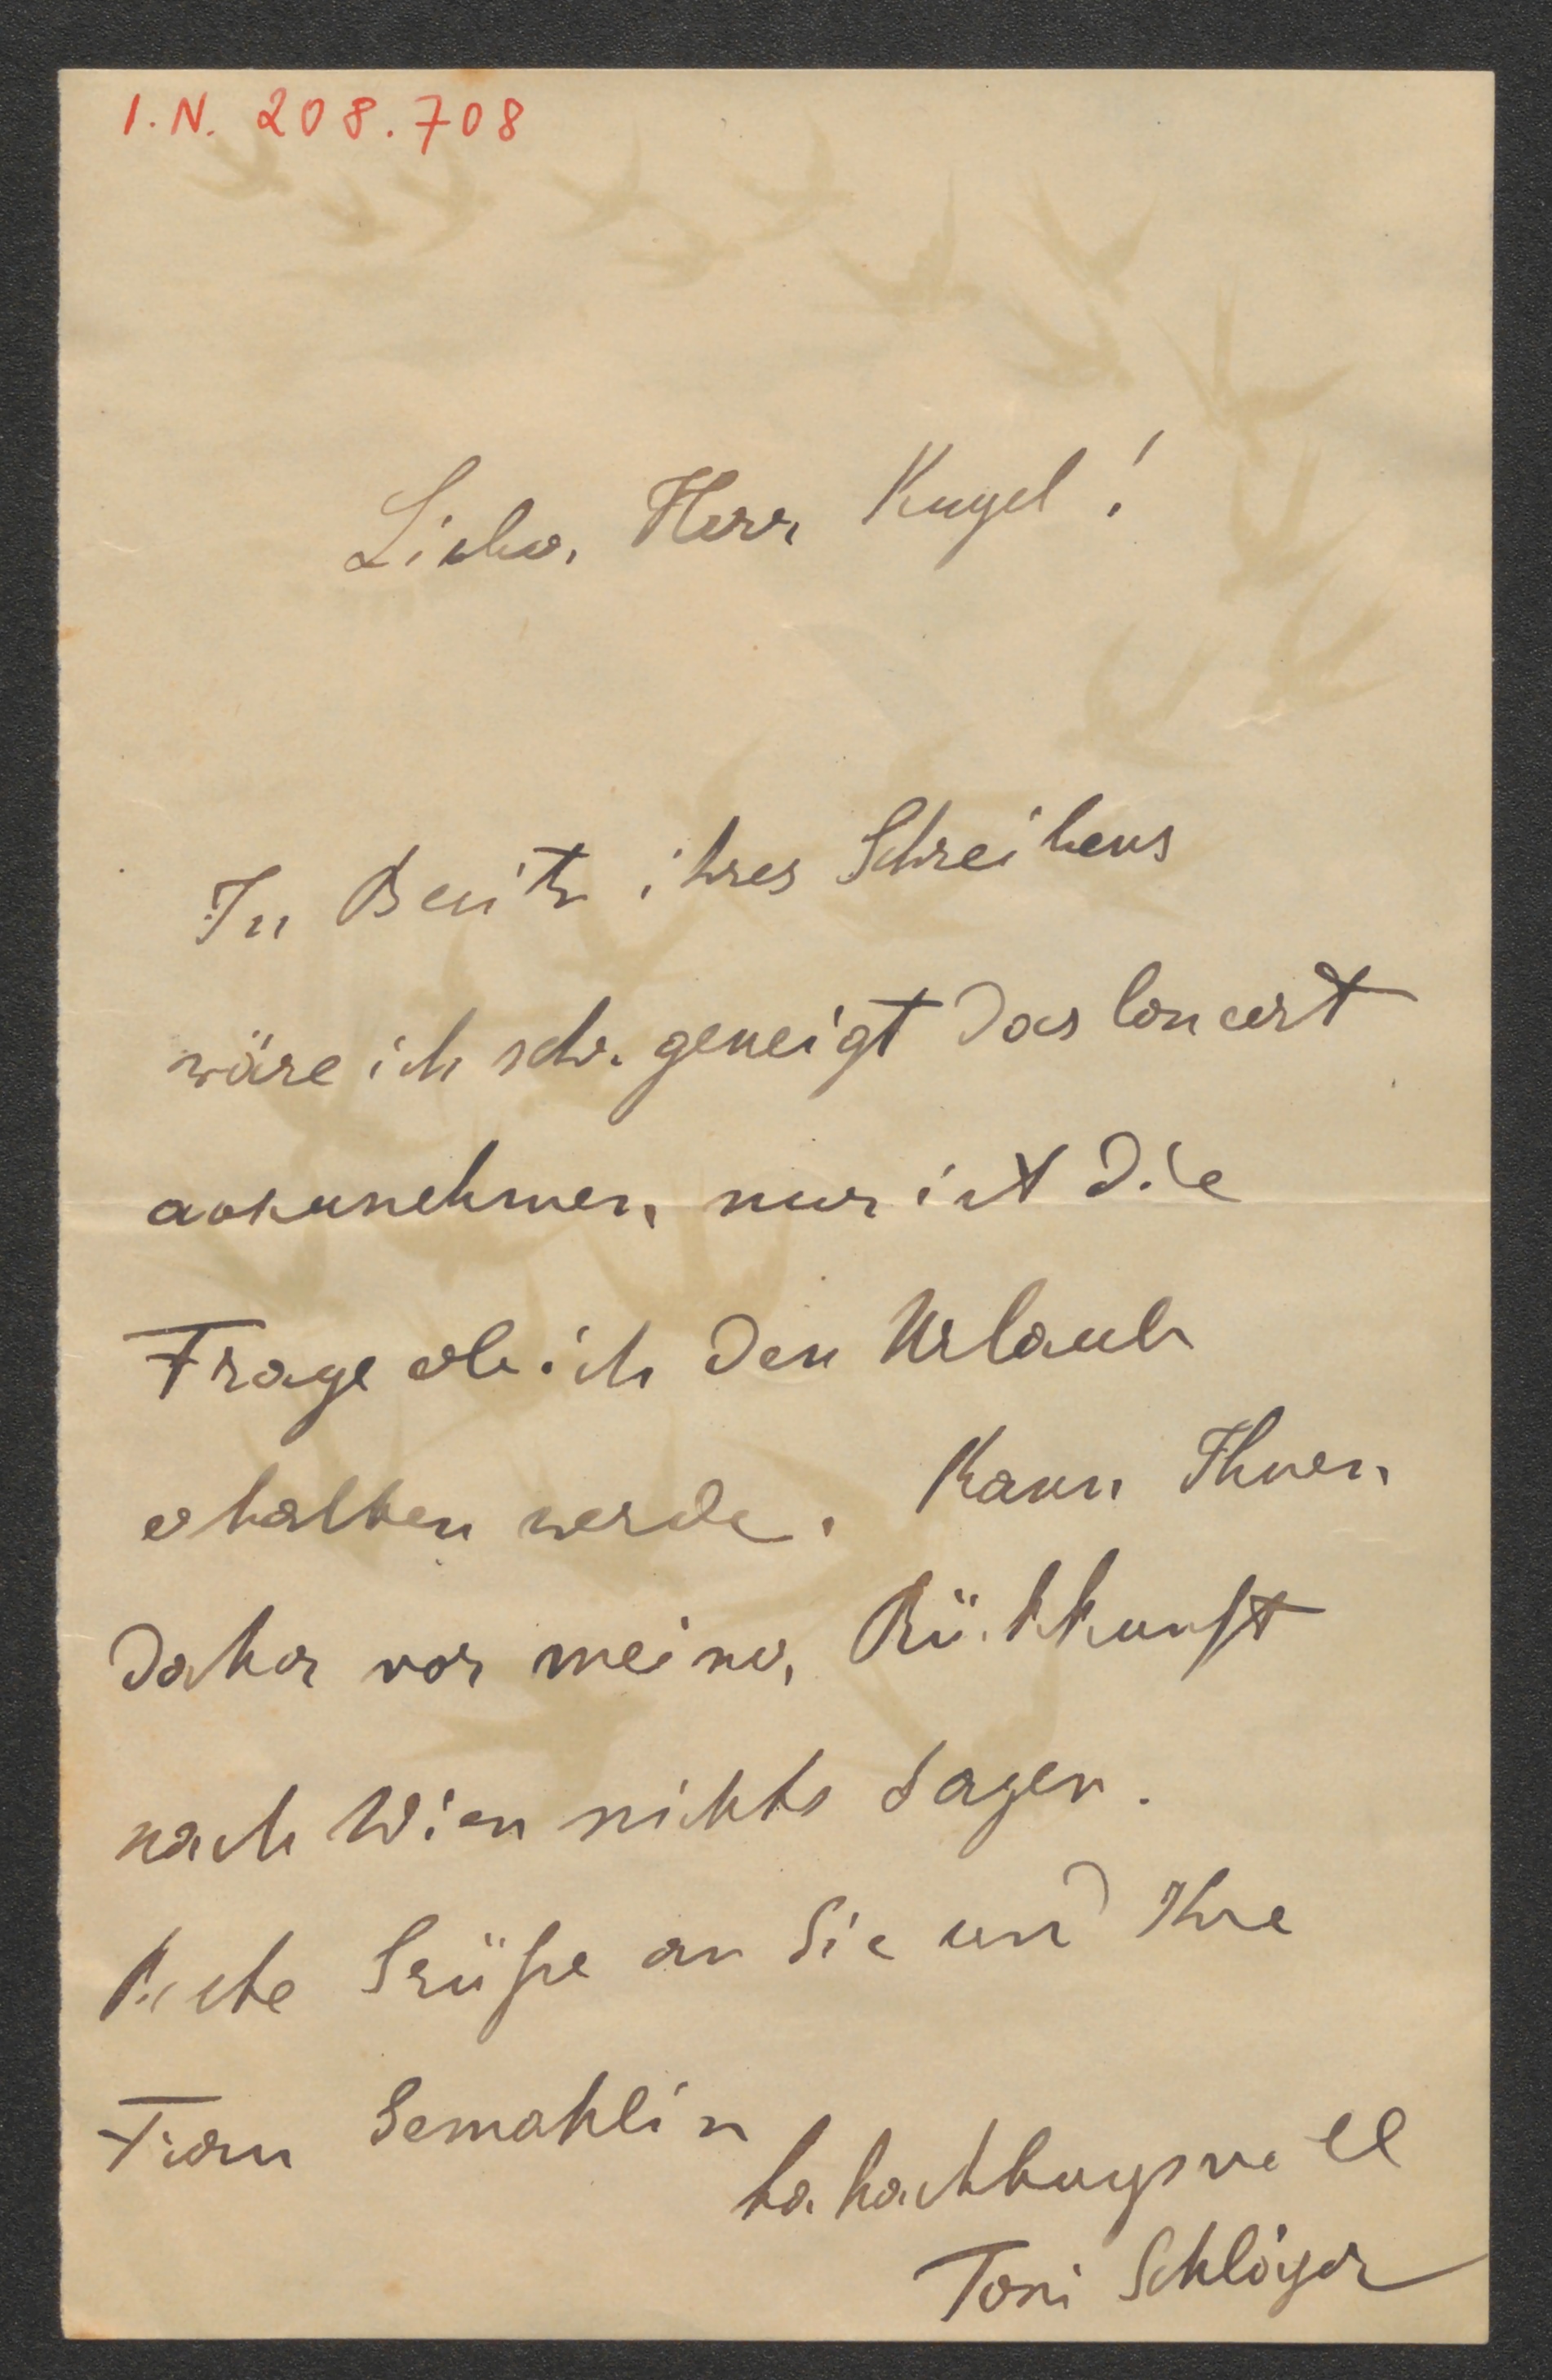 I.N. 208.708
Lieber Herr Kugel!
In Besitz ihres Schreibens
wäre ich sehr geneigt das Concert
anzunehmen, nur ist die
Frage ob ich den Urlaub
erhalten werde. Kann Ihnen
daher vor meiner Rückkunft
nach Wien nichts sagen.
Beste Grüße an Sie und Ihre
Frau Gemahlin
hochachtungsvoll
Toni Schläger